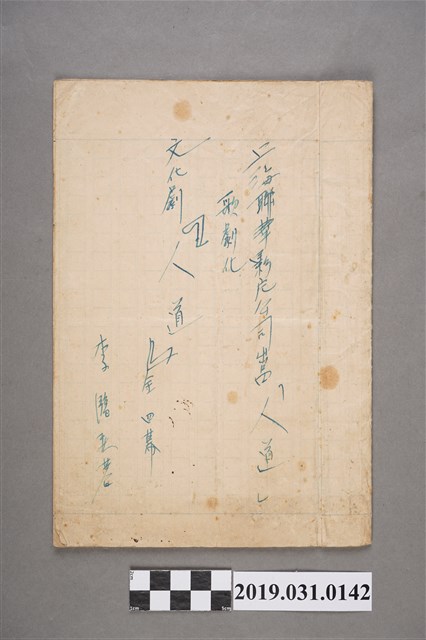 上海聯華影片公司出品「人道」
歌劇化
文化劇『人道』全四幕
李
2019.031.0142
2cm
5cm